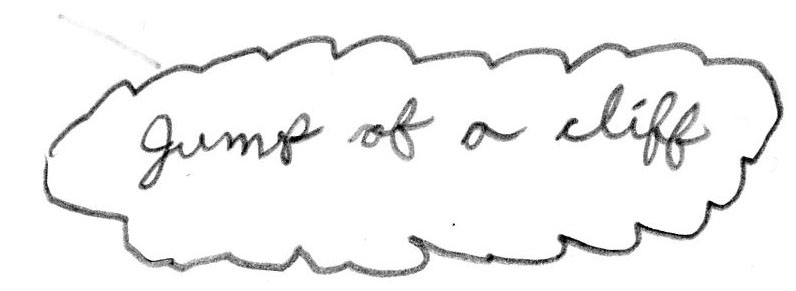 Jump of a cliff